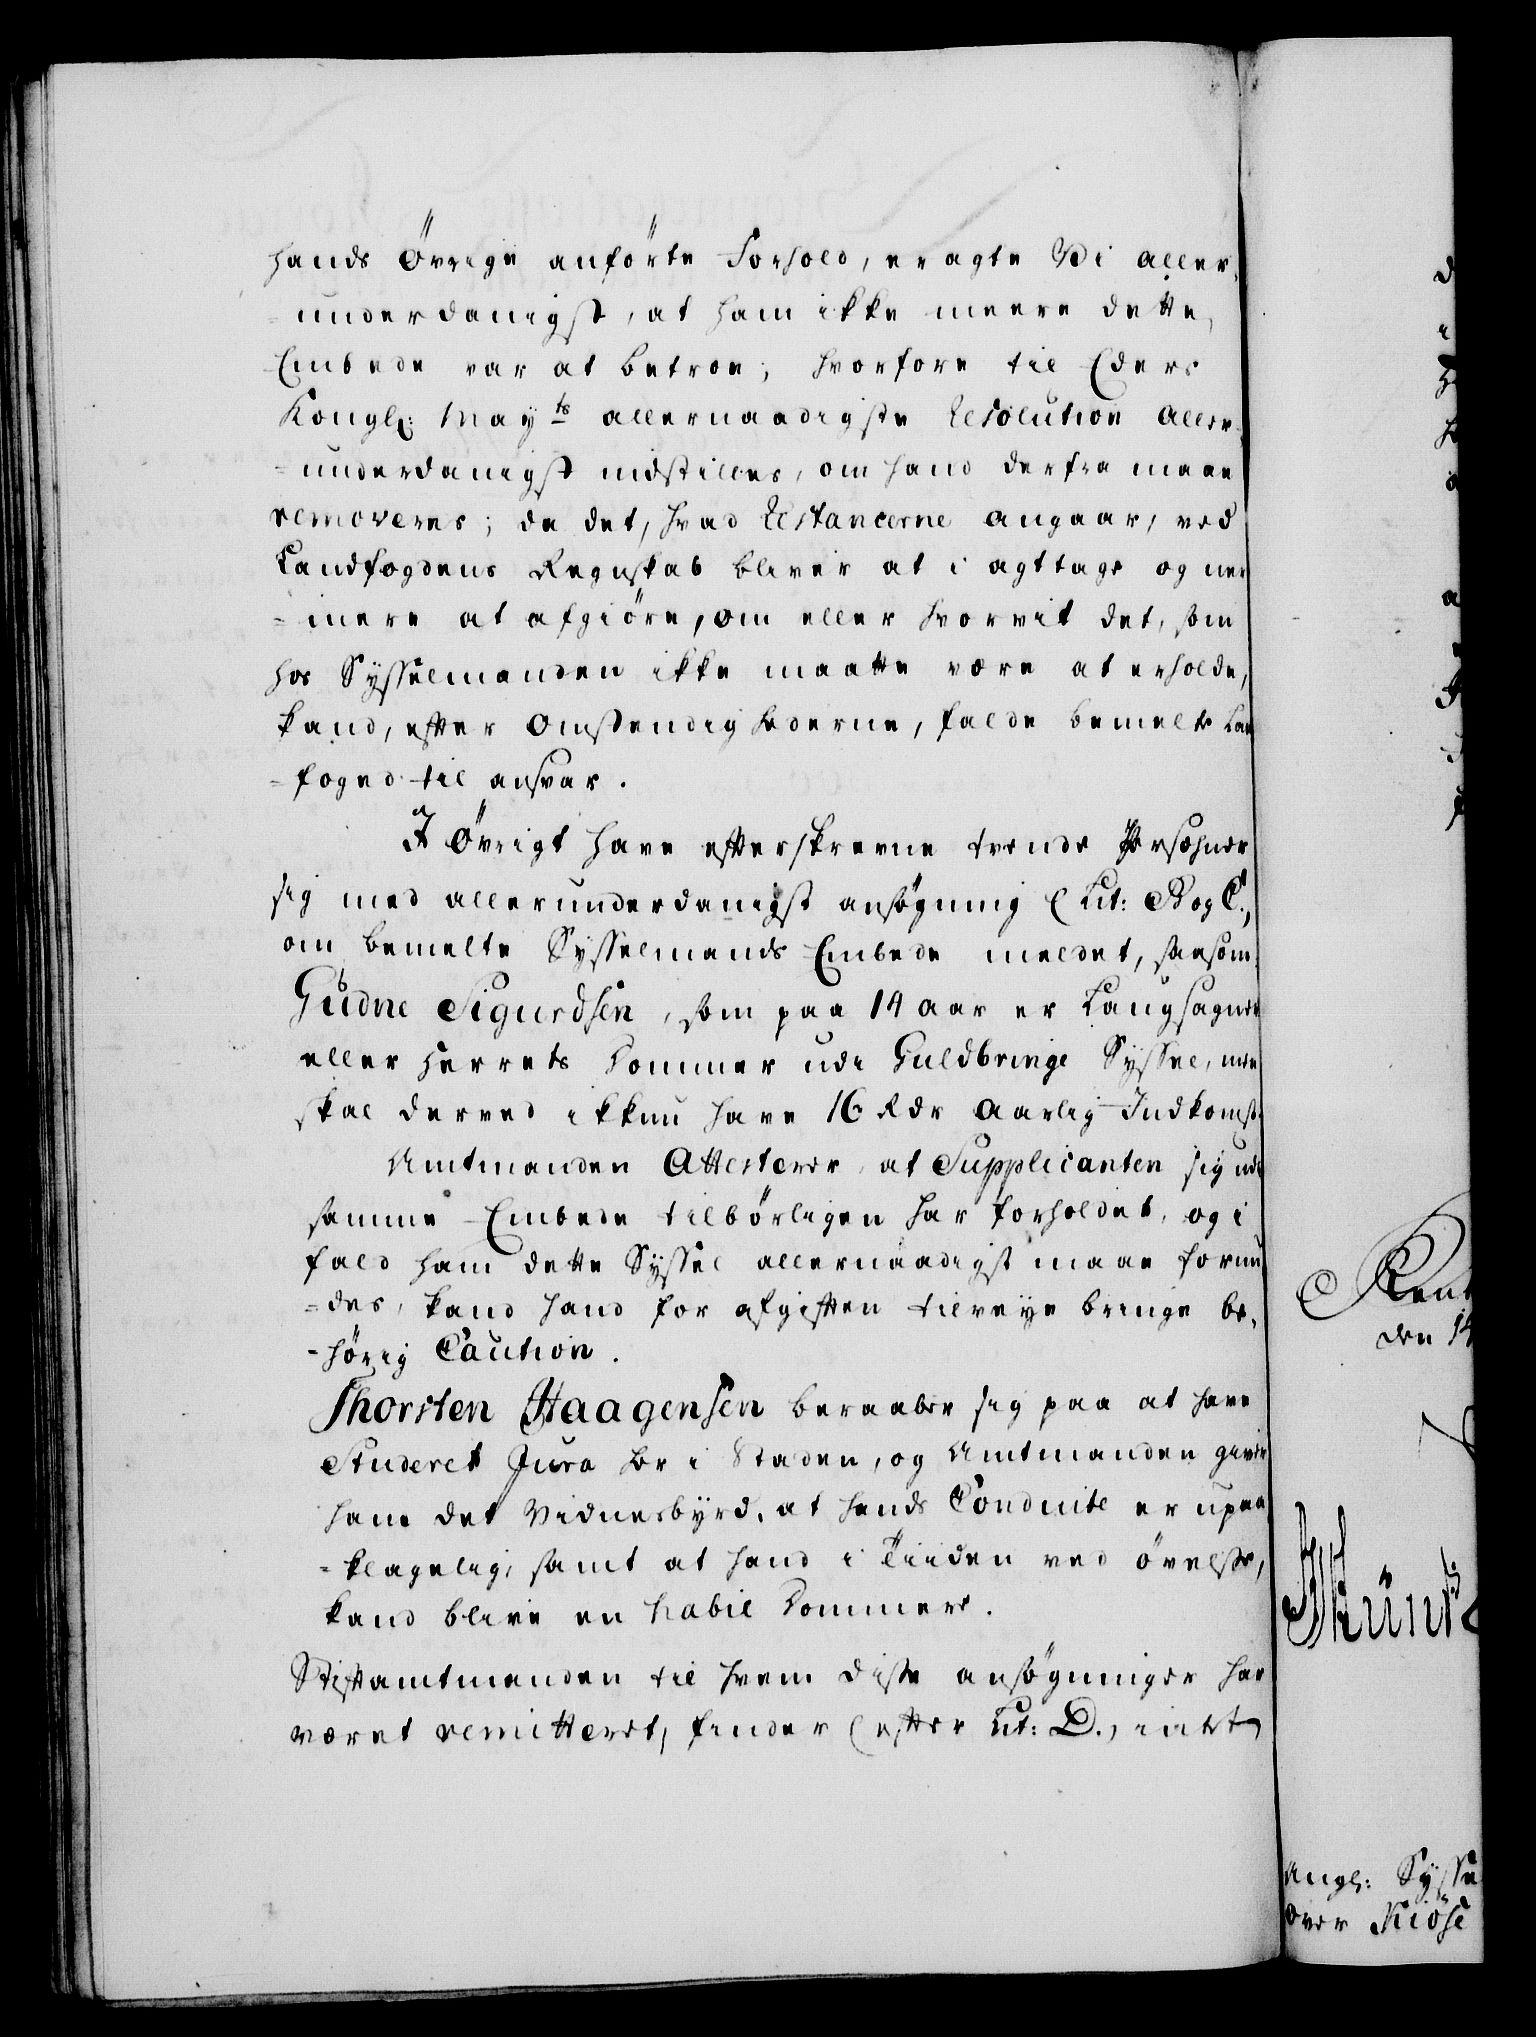 hands Övrige anförte Forhold, eragte Vi aller-
-underdanigst, at ham ikke meere dette
Embede var at betroe; hvorfore til Eders
Kongl: Mayts allernaadigste Resolution aller-
-underdanigst indstilles, om hand derfra maae
removeres; da det, hvad Restancerne angaar, ved
Landfogdens Regnskab bliver at i agttage og
-mere at afgiöre, om eller hvorvit det, som
hos Sysselmanden ikke maatte være at erholde,
kand, efter Omstendighederne, falde bemelte
-foged til ansvar.
I Övrigt have efterskrevne tvende Persohner
sig med allerunderdanigst ansøgning (Lit: B og C.,
om bemelte Sysselmands Embede meldet, saasom
Gudne Sigurdsen, som paa 14 aar er Laugsagner
eller Herrets Dommer udi Guldbringe Syssel, men
skal derved ikkun have 16 Rdr Aarlig Indkomst
Amtmanden Attesterer, at Supplicanten sig udi
samme Embede tilbörligen har forholdet, og i
fald ham dette Syssel allernaadigst maae forun
-des, kand hand for afgiften tilveye bringe be-
-hörig Caution.
Thorsten Haagensen beraaber sig paa at have
Studeret Jura her i Staden, og Amtmanden giver
ham det Vidnesbyrd, at hands Conduite er upaa
-klagelig, samt at hand i Tiiden ved övelse,
kand blive en habil Dommere.
Stiftamtmanden til hvem disse ansögninger har
været remitteret, finder (efter Lit: D., intet
den 14
Angl: Sysse
over Kiöse